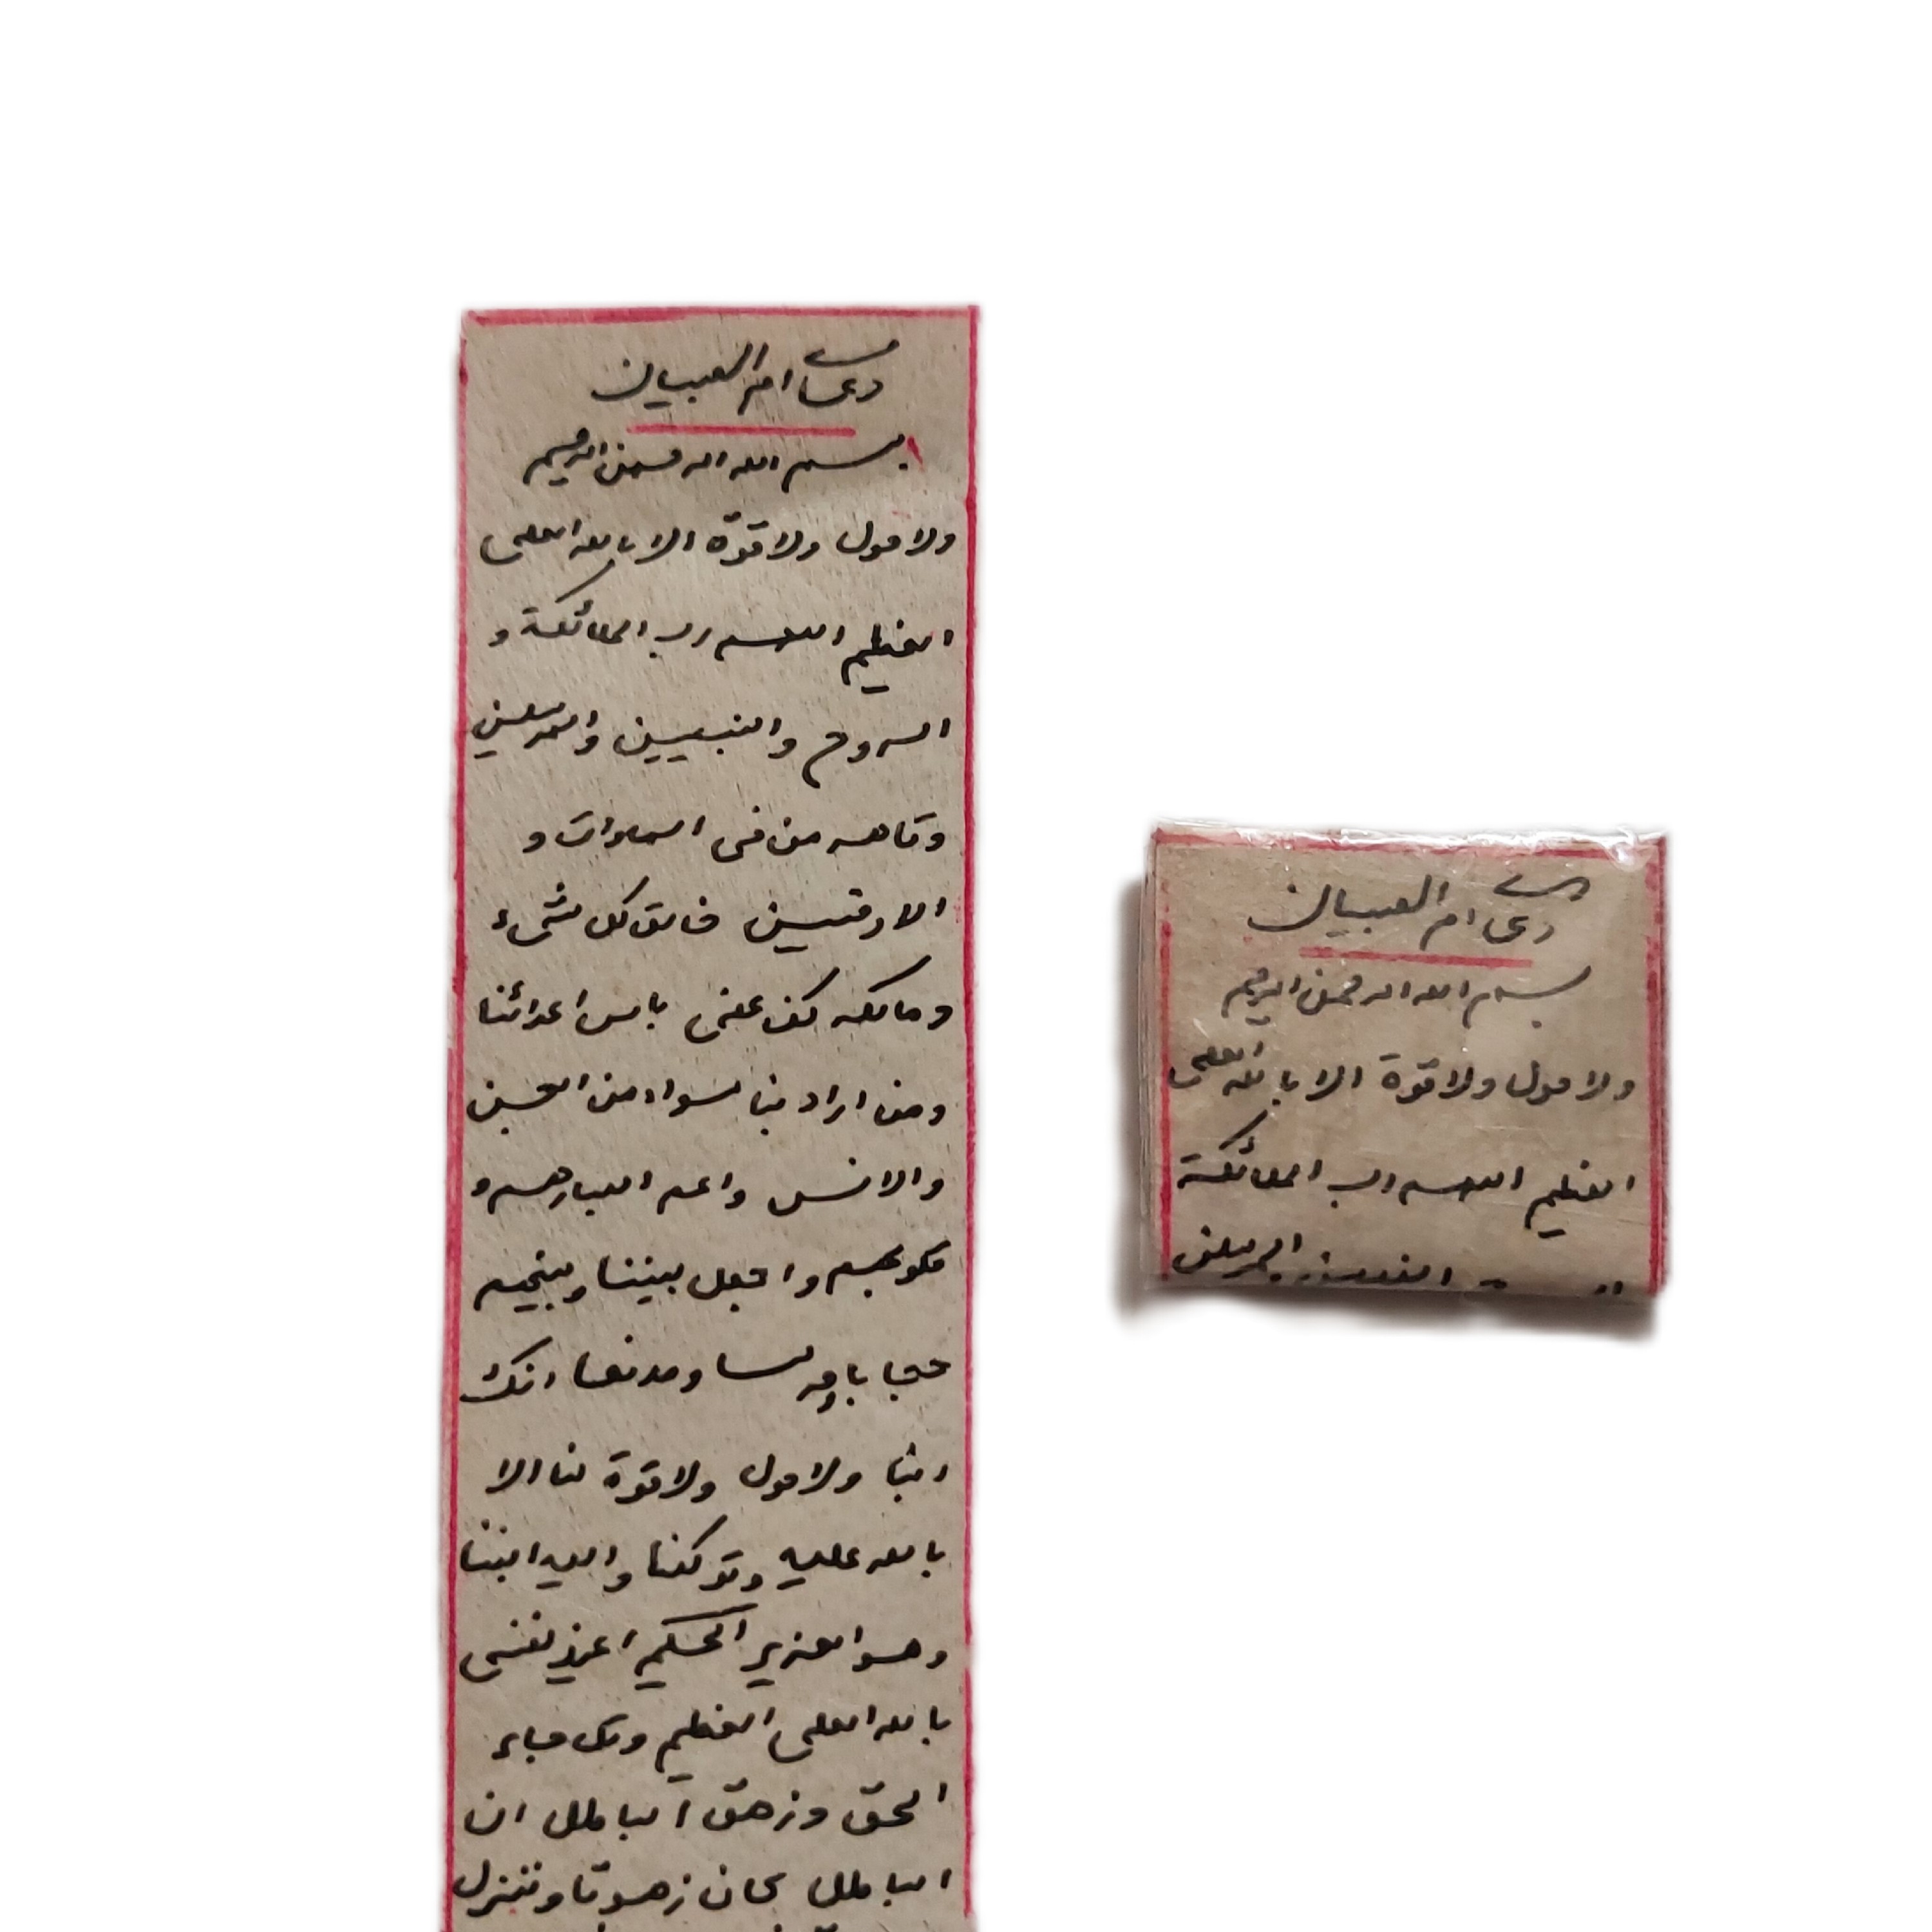 دعای ام الصبیان
بسم الله الرحمن الرحیم
ولا حول ولا قوّة الا بالله العلی
العظیم اللهم رب الملائکة و
الروح والنبیین والمرسلین
وقاهر من فی السماوات و
الارضین خالق کل شیء
ومالکه کف عنی باس اعدائنا
ومن اراد بنا سواء من الجن
والانس واعم ابصارهم و
قلوبهم واجعل بیننا وبینهم
حجابا وحرسا ومدفعا انک
ربنا ولا حول ولا قوة لنا الا
بالله علیه وتوکلنا والیه انبنا
وهو العزیز الحکیم اعیذ نفسی
بالله العلی العظیم وقل جاء
الحق وزهق الباطل ان
الباطل کان زهوقا وننزل
دعای ام الصبیان
بسم الله الرحمن الرحیم
ولا حول ولا قوة الا بالله العلی
العظیم اللهم رب الملائکة